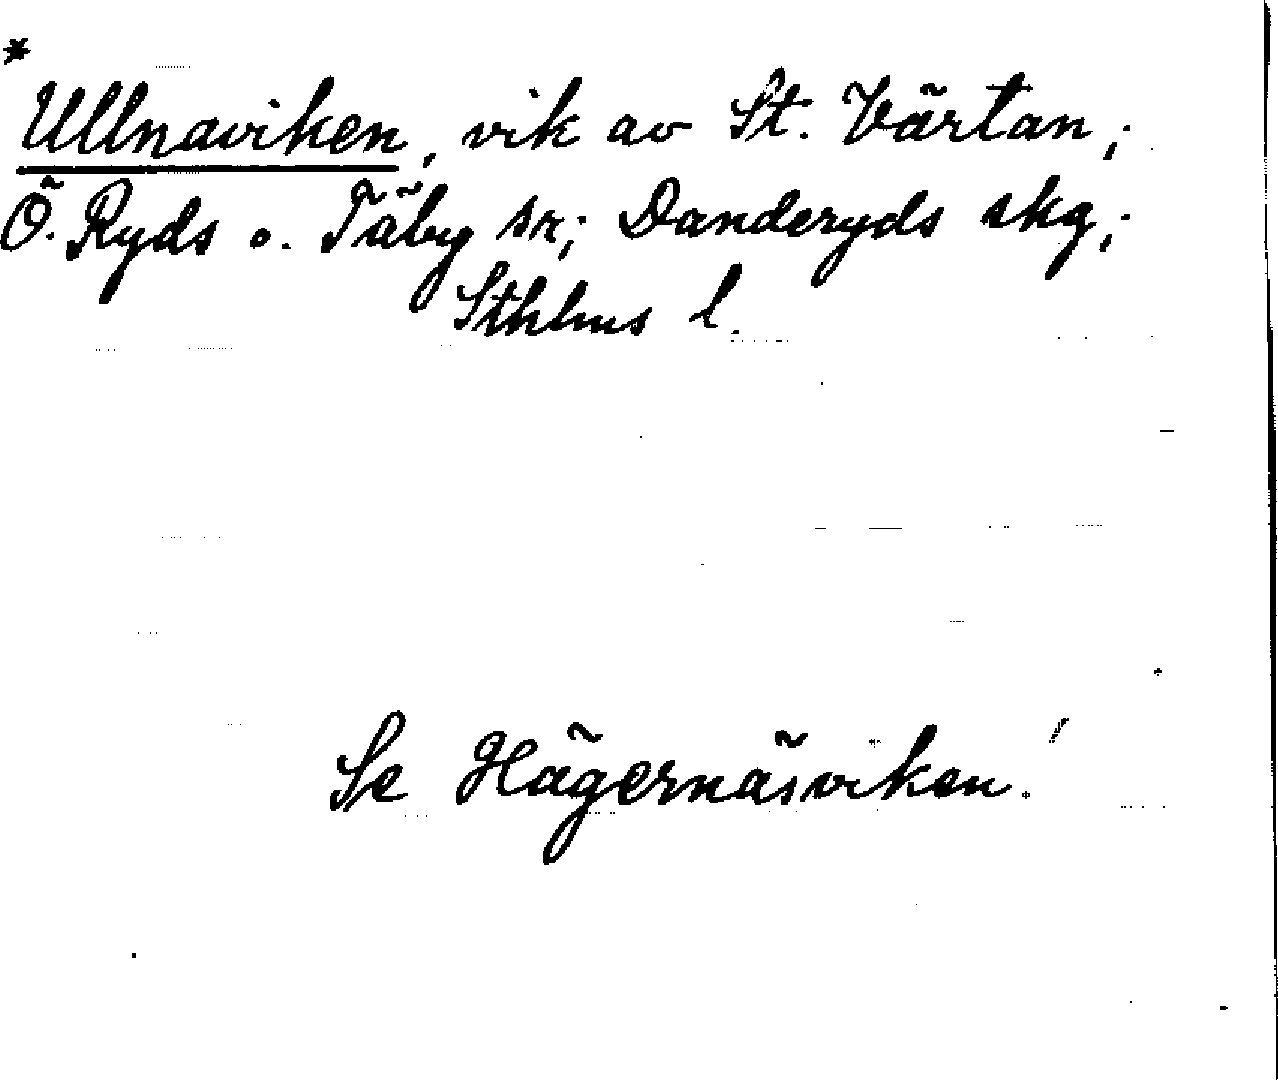 *
Ullnaviken, vik av St. Värtan;
Ö. Ryds o. Täby sr; Danderyds skg;
Sthlms l.
Se Hägernäsviken!